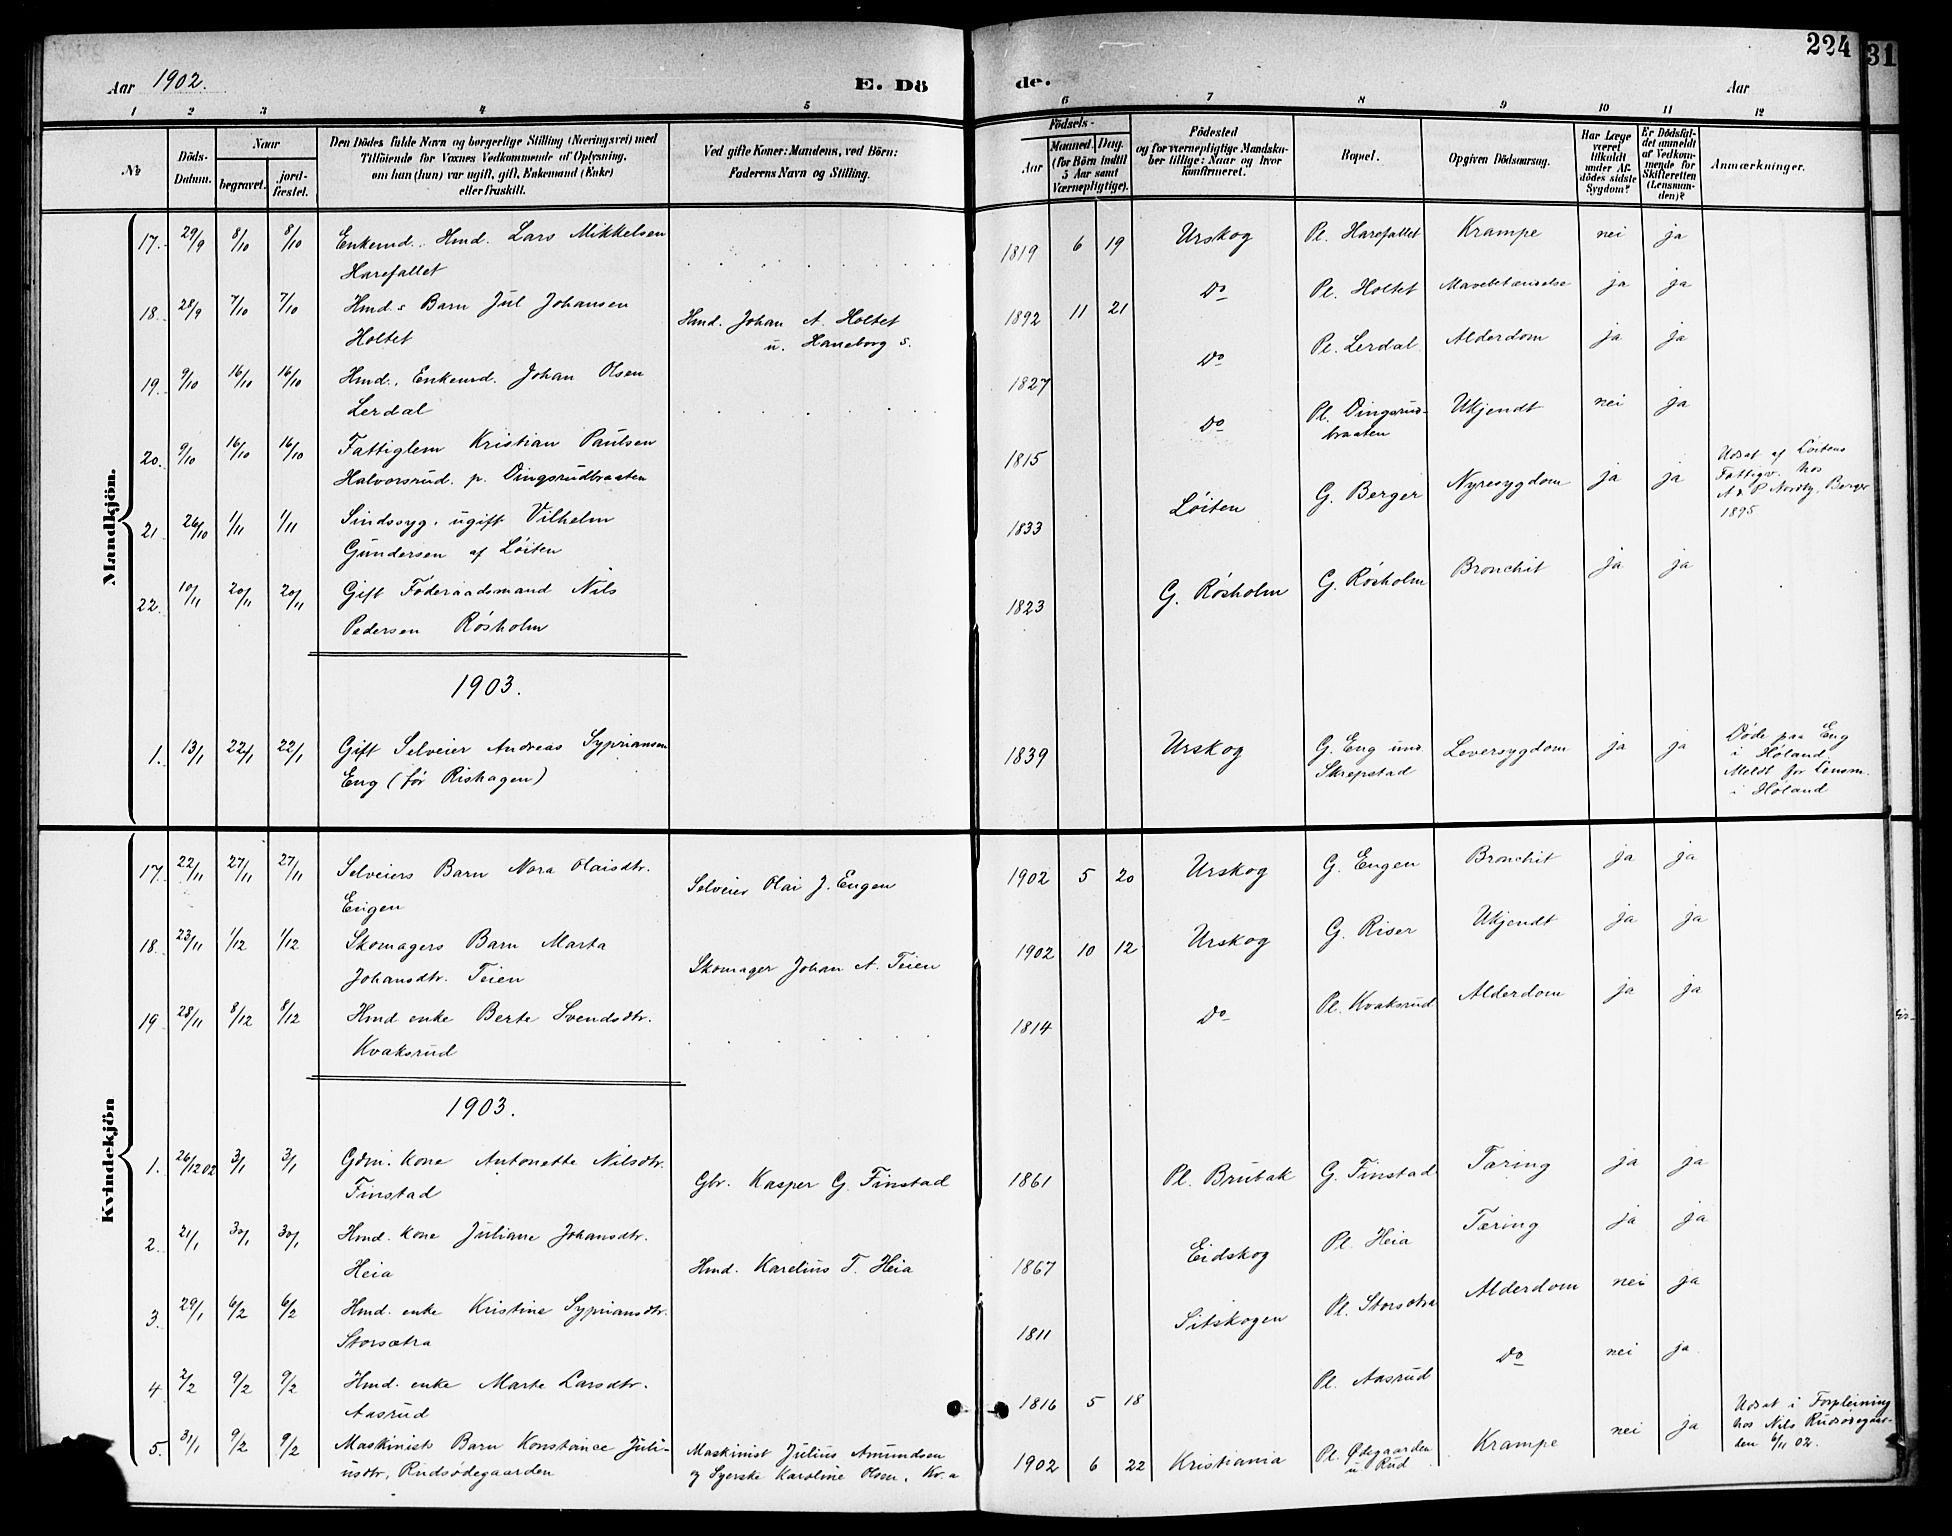 224
31
Aar 1902.
E. Dö
de.
Aar
1 2 3 4 5
6 7 8 9 10 11 12
№
Döds-
Datum.
Naar
begravet.
jord-
fæstet.
Den Dödes fulde Navn og borgerlige Stilling (Næringsvei) med
Tilföiende for Voxnes Vedkommende af Oplysning,
om han (hun) var ugift, gift, Enkemand (Enke)
eller fraskilt.
Ved gifte Koner: Mandens, ved Börn:
Faderens Navn og Stilling.
Födsels-
Aar
Maaned. Dag.
(for Börn indtil
5 Aar samt
Værnepligtige).
Födested
og for værnepligtige Mandska-
ber tillige: Naar og hvor
konfirmeret.
Bopæl.
Opgiven Dödsaarsag.
Har Læge
været
tilkaldt
under Af-
dödes sidste
Sygdom?
Er Dödsfal-
det anmeldt
af Vedkom-
mende for
Skifteretten
(Lensman-
den)?
Anmærkninger.
Mandkjön.
17. 29/9 8/10 8/10 Enkemd. Hmd. Lars Mikkelsen
Harefallet
1819 6 19 Urskog Pl. Harefallet Krampe nei ja
18. 28/9 7/10 7/10 Hmd.s Barn Jul Johansen
Holtet
Hmd. Johan A. Holtet
u. Haneborg s.
1892 11 21 Do Pl. Holtet Mavebetændelse ja ja
19. 9/10 16/10 16/10 Hmd., Enkemd. Johan Olsen
Lerdal
1827 Do Pl. Lerdal Alderdom ja ja
20. 9/10 16/10 16/10 Fattiglem Kristian Paulsen
Halvorsrud. p. Dingsrudbraaten
1815 Do Pl. Dingsrud-
braaten
Ukjendt nei ja
21 26/10 1/11 1/11 Sindssyg, ugift Vilhelm
Gundersen af Löiten
1833 Löiten G. Berger Nyresygdom ja ja
Udsat af Löitens
Fattigv. hos
A & P Nordby, Berger
1895
22. 10/11 20/11 20/11 Gift Föderaadsmand Nils
Pedersen Røsholm
1823 G. Røsholm G. Røsholm Bronchit ja ja
1903.
1. 13/1 22/1 22/1 Gift Selveier Andreas Sypriansen
Eng (før Rishagen)
1839 Urskog G. Eng und.
Skrepstad
Leversygdom ja ja
Døde paa Eng
i Høland.
Meldt for Lensm.
i Høland
Kvindekjön
17. 22/11 27/11 27/11 Selveiers Barn Nora Olaisdtr.
Engen
Selveier Olai J. Engen
1902 5 20 Urskog G. Engen Bronchit ja ja
18. 23/11 1/12 1/12 Skomagers Barn Marta
Johansdtr. Teien
Skomager Johan A. Teien
1902 10 12 Urskog G. Riser Ukjendt ja ja
19 28/11 8/12 8/12 Hmd. enke Berte Svendsdtr.
Kvaksrud
1814 Do Pl. Kvaksrud Alderdom ja ja
1903.
1. 26/12 02 3/1 3/1 Gdm. Kone Antonette Nilsdtr.
Finstad
Gbr. Kasper G. Finstad
1861 Pl. Brubak G. Finstad Tæring ja ja
2. 21/1 30/1 30/1 Hmd. Kone Juliane Johansdtr.
Heia
Hmd. Karelius T. Heia
1867 Eidskog Pl. Heia Tæring ja ja
3. 29/1 6/2 6/2 Hmd. enke Kristine Sypriansdtr.
Storsætra
1811 Sitskogen Pl. Storsætra Alderdom nei ja
4 2/2 9/2 9/2 Hmd. enke Marte Larsdtr.
Aasrud
1816 5 18 Pl. Aasrud Do nei ja
5. 31/1 9/2 9/2 Maskinists Barn Konstance Juli-
usdtr, Rudsödegaarden
Maskinist Julius Amundsen
og Syerske Karoline Olsen, Kr.a
1902 6 22 Kristiania Pl. Ødegaarden
u. Rud
Krampe nei ja
Udsat i Forpleining
hos Nils Rudsødegaar-
den 6/11 02.